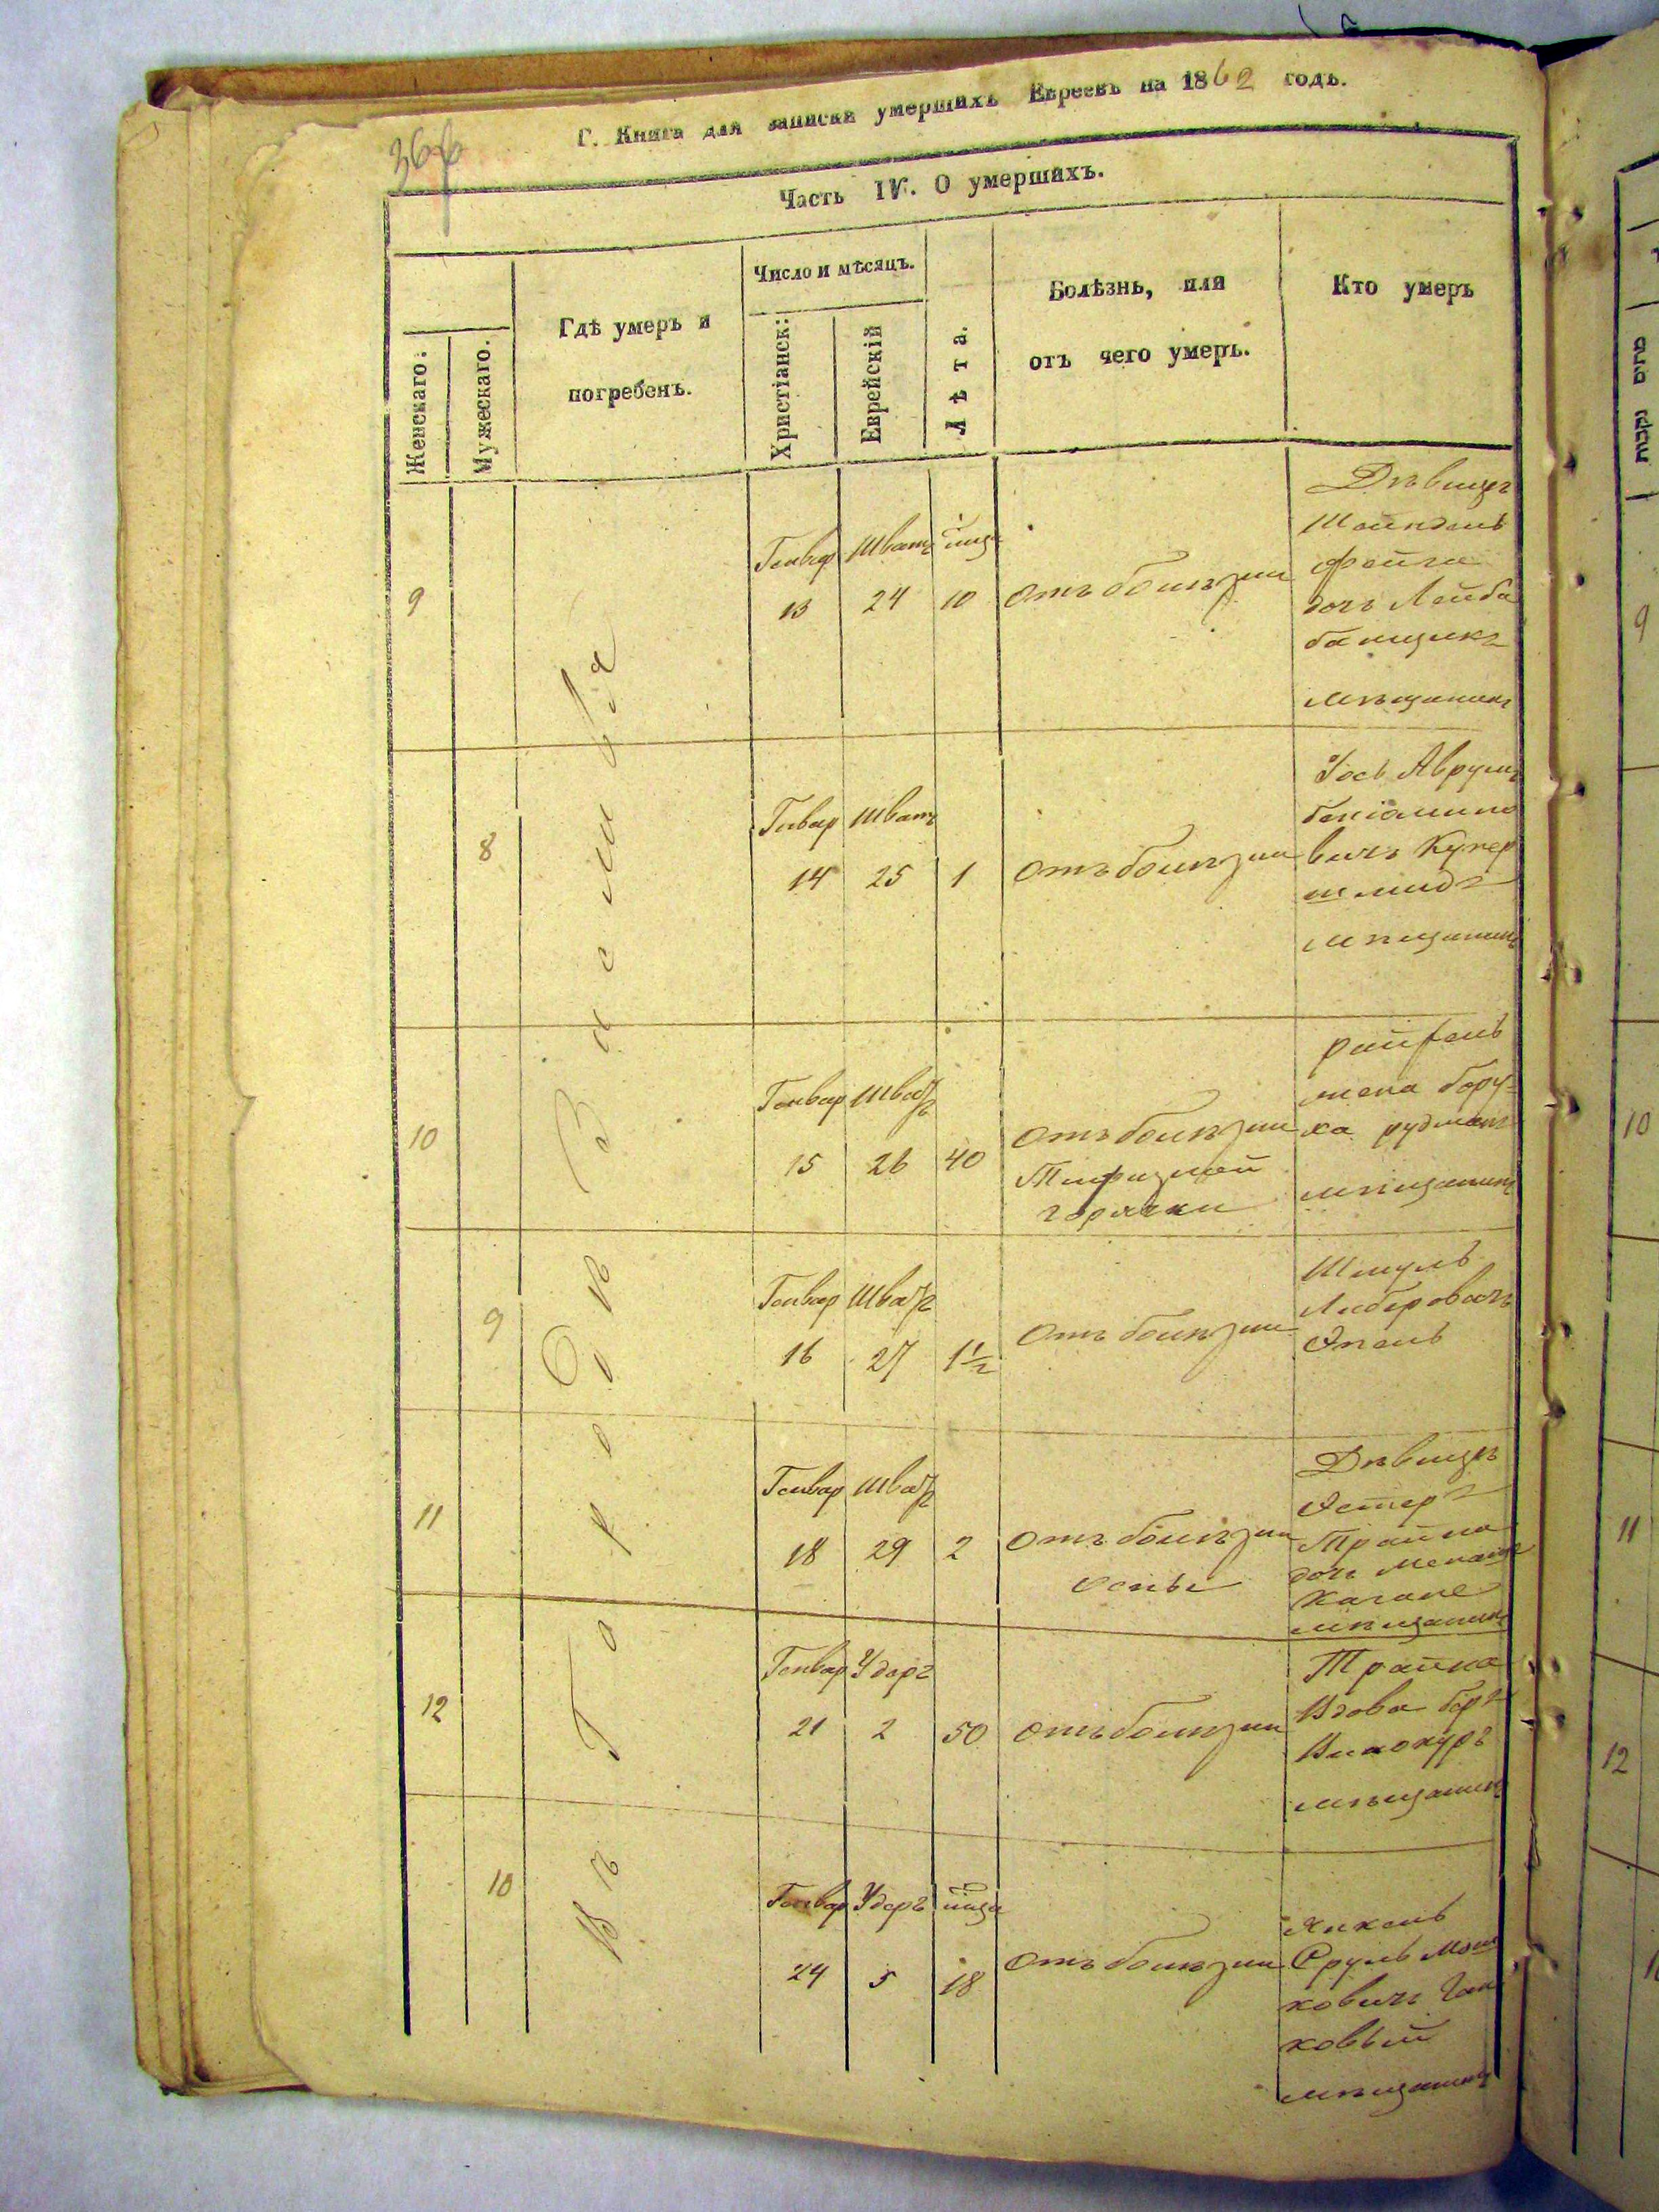 Г. Книга для записки умершихъ Евреевъ на 1862 годъ.
Часть IV. О умершихъ.
Женскаго:
Мужескаго.
Гдѣ умеръ и
погребенъ.
Число и мѣсяцъ.
Христіанск:
Еврейскій
Лѣта.
Болѣзнь, или
отъ чего умеръ.
Кто умеръ
Въ Городѣ
9
Генвар
13
Шватъ
24
10
Отъ болѣзни
Дѣвица
Шейндель
Фейга
дочь Лейба
банщикъ
мѣщанинъ
8
Генвар
14
Шватъ
25
1
Отъ болѣзни
Іось Аврумъ
беніамино
вичъ Купер
шмидъ
мѣщанинъ
10
Генвар
15
Шватъ
26
40
Отъ болѣзни
горячки
жена бору-
ха рудманъ
мѣщанинъ
9
Генвар
16
Шватъ
27
1 1/2
Отъ болѣзни
Шмуль
Либеровичъ
11
Генвар
18
Шватъ
29
2
Отъ болѣзни
оспы
Дѣвица
Эстеръ
Трайна
дочь
мѣщанинъ
12
Генвар
21
Ударъ
2
50
отъ болѣзни
Трайна
Вдова беръ
Винокуръ
мѣщанинъ
10
Генвар
24
Удеръ
5
18
Отъ болѣзни
Янкель
Сруль Мош
ковичъ
ковый
мѣщанинъ
9
10
11
12